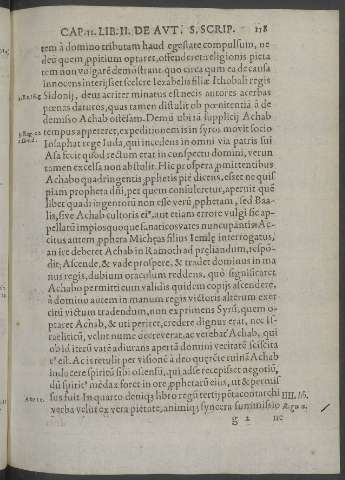 CAP. 11. LIB. II. DE AVT. S. SCRIP. 118
tem à domino tributam haud egestate compulsum, ne
deũ quem ꝓpitium optaret, offenderet religionis pieta
tem non vulgatẽ demonstrant. quo circa qum ea de causa
innocens interijsset scelere Iezabelis filiæ Ithobali regis
Sidonij, deus acriter minatus est necis autores acerbas
pœnas daturos, quas tamen distulit ob pœnitentiã à
demisso Achab ostẽsam. Demũ ubi iã supplicij Achab
tempus appeteret, expeditionem is in syros movit socio
Iosaphat rege Iuda, qui incedens in omni via patris sui
Asa fecit quod rectum erat in conspectu domini, verun
tamen excelsa non abstulit. Hic prosperã pmittentibus
Achabo quadringentis ꝓphetis piè dicens, esset ne quis
piam propheta dñi, per quem consuleretur, aperuit quẽ
libet quadringentorũ non esse verũ ꝓphetam, sed Baa-
lis, sive Achab cultoris eiꝰ, aut etiam errore vulgi sic ap-
pellatũ impiosquoque fanaticos vates nuncupantis. Ac-
citus autem ꝓphera Micheas filius Iemlẹ interrogatus,
an ire deberet Achab in Ramoth ad prẹliandum, respõ-
dit, Ascende, & vade prospere, & tradet dominus in ma
nus regis, dubium oraculum reddens, quo significaret
Achabo permitti cum validis quidem copijs ascendere,
à domino autem in manum regis victoris alterum exer
citũ victum tradendum, non exprimens Syrũ, quem o-
ptaret Achab, & uti periret, credere dignus erat, nec Is-
raeliticũ, velut nume decreverat, ac verebat Achab, qui
ob id iterũ vatẽ adiurans apertã domini veritatẽ sciscita
tꝰ est. Ac is retulit per visionẽ à deo quẹrẽte ruinã Achab
indocere spiritũ sibi ostensũ, qui adse recepisset negotiũ,
dũ spiritꝰ mẽdax foret in ore ꝓphetarũ eius, ut & permis
sus fuit. In quarto deniq; libro regũ tertij pẽtacontarchi
verba velut ex vera pietate, animiq; syncera summissio
g 2 ne